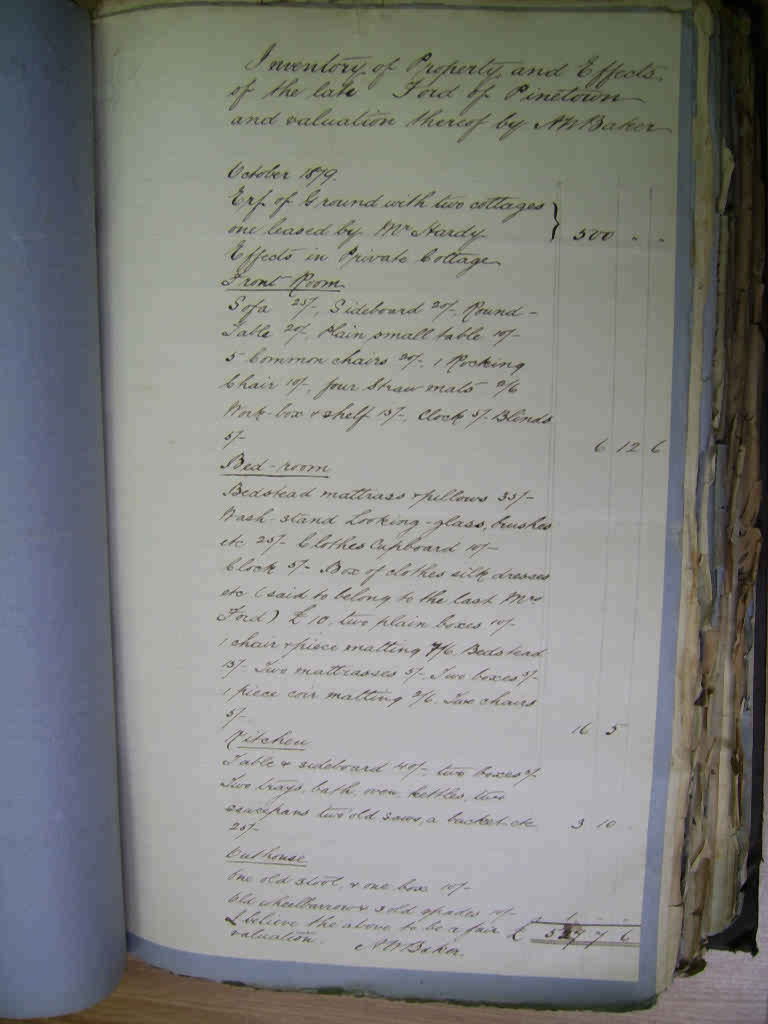 Inventory of Property and Effects
of the late Ford of Pinetown
and valuation thereof by A W Baker
October 1879.
Erf of Ground with two cottages
one leased by Mr Hardy } 500 " "
Effects in Private Cottage
Front Room
Sofa 25/-, Sideboard 20/-, Round -
Table 20/-, Plain small table 10/-
5 Common chairs 20/-, 1 Rocking
Chair 10/-, four Straw mats 2/6
Work-box & shelf 15/-, Clock 5/- Blinds
5/- 6 12 6
Bed-room
Bedstead mattrass & pillows 35/-
Wash-stand Looking-glass, brushes
etc 25/- Clothes Cupboard 10/-
Clock 5/- Box of clothes silk dresses
etc (said to belong to the last Mrs
Ford) £10, two plain boxes 10/-
1 chair & piece matting 7/6 Bedstead
15/- Two mattrasses 5/- Two boxes 5/-
1 piece coir matting 2/6. Two chairs
5/- 16 5
Kitchen
Table & sideboard 40/-, two boxes 5/-
Two trays, bath, oven, kettles, two
saucepans two old saws, a bucket etc
25/- 3 10 -
Outhouse
One old stool, & one box 10/-
Old wheelbarrow & 3 old spades 10/- 1 - -
I believe the above to be a fair £ 527 7 6
valuation. A W Baker.